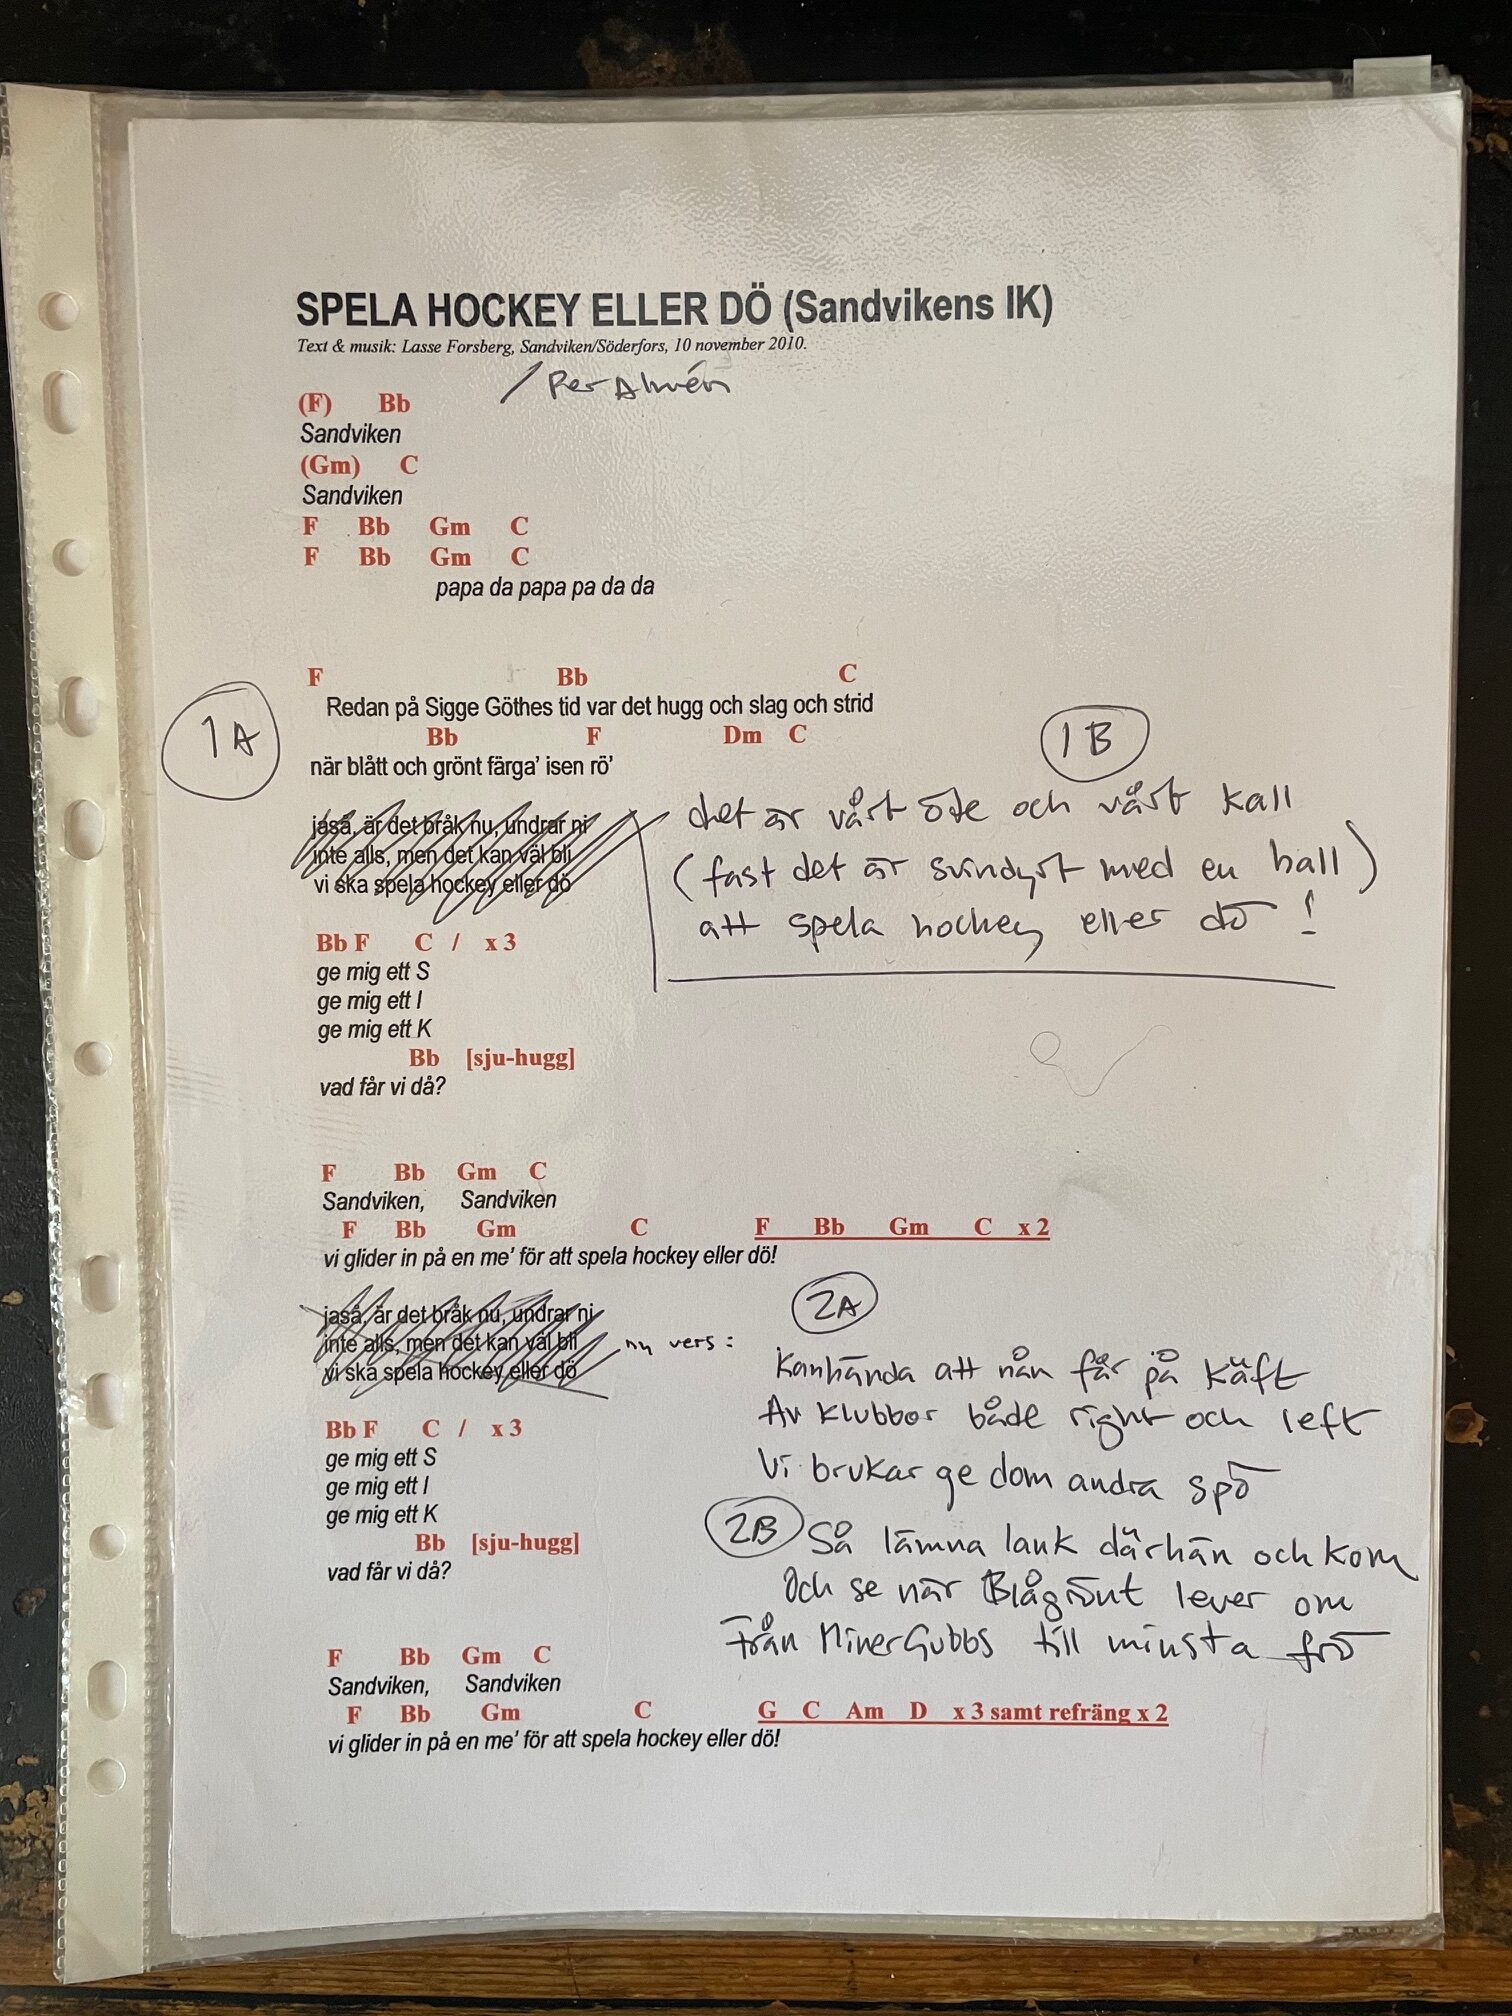 SPELA HOCKEY ELLER DÖ (Sandvikens IK)
Text & musik: Lasse Forsberg, Sandviken/Söderfors, 10 november 2010.
/ Per Almén
(F) Bb
Sandviken
(Gm) C
Sandviken
F Bb Gm C
F Bb Gm C
papa da papa pa da da
F Bb C
1A
Redan på Sigge Göthes tid var det hugg och slag och strid
Bb F Dm C
när blått och grönt färga' isen rö'
jaså, är det bråk nu, undrar ni
inte alls, men det kan väl bli
vi ska spela hockey eller dö
1B
det är vårt öde och vårt kall
(fast det är svindyrt med en hall)
att spela hockey eller dö !
Bb F C / x 3
ge mig ett S
ge mig ett I
ge mig ett K
Bb [sju-hugg]
vad får vi då?
F Bb Gm C
Sandviken, Sandviken
F Bb Gm C F Bb Gm C x 2
vi glider in på en me' för att spela hockey eller dö!
jaså, är det bråk nu, undrar ni
inte alls, men det kan väl bli
vi ska spela hockey eller dö
ny vers :
2A
Kanhända att nån får på käft
Av klubbor både right och left
Vi brukar ge dom andra spö
2B Så lämna lank därhän och kom
Och se när Blågrönt lever om
Från MinerGubbs till minsta frö
Bb F C / x 3
ge mig ett S
ge mig ett I
ge mig ett K
Bb [sju-hugg]
vad får vi då?
F Bb Gm C
Sandviken, Sandviken
F Bb Gm C G C Am D x 3 samt refräng x 2
vi glider in på en me' för att spela hockey eller dö!